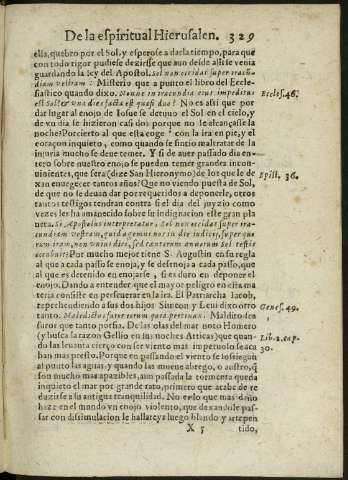 De la espiritual Hierusalen. 329
ella, quebro por el Sol, y esperose a darla tiempo, para que
con todo rigor pudiese dezirse que aun desde alli se venia
guardando la ley del Apostol. Sol non occidat super iracun-
diam vestram: Misterio que a punto el libro del Eccle-
siastico quando dixo. Nonne in iracundia eius impeditus
est Sol & vna dies facta est quasi duo? No es asi que por
dar lugar al enojo de Iosue se detuuo el Sol en el cielo, y
de vn dia se hizieron casi dos porque no le alcançasse la
noche? Por cierto al que esta coge con la ira en pie, y el
coraçon inquieto, como quando se fingio maltratar de la
injuria mucho se deue temer. Y si de auer passado dia en-
tero sobre nuestro enojo se pueden temer grandes incon-
uinientes, que sera (dize San Hieronymo) de los que le de
xan enuegecer tantos años? Que no viendo puesta de Sol,
de que no se deuan dar por requeridos a deponerlo, otros
tantos testigos tendran contra si el dia del juyzio como
vezes les ha amanecido sobre su indignacion este gran pla
neta. Si Apostolus interpretatur, Sol non occidat super ira-
cundiam vestram, quid agemus nos in die iudicij, super quo
rum iram, non vnius diei, sed tantorum annorum Sol testis
occubuit? Por mucho mejor tiene S. Augustin en su regla
al que a cada passo se enoja, y se desenoja a cada passo, que
al que es detenido en enojarse, si es duro en deponer el
enojo. Dando a entender que el mayor peligro en esta ma
teria consiste en perseuerar en la ira. El Patriarcha Iacob,
reprehendiendo a sus dos hijos Simeon y Leui dixo otro
tanto. Maledictus furor eorum quia pertinax. Maldito sea
furor que tanto porfia. De las olas del mar noto Homero
(y busca la razon Gellio en sus noches Atticas) que quan-
do las leuanta cierço con ser viento mas impetuoso se aca
ban mas presto. Porque en passando el viento se sosiegan
al punto las aguas: y quando las mueue abrego, o austro, q̃
son mucho mas apazibles, aun passada la tormenta queda
inquieto el mar por grande rato, primero que acabe de re
duzirse a su antigua tranquilidad. No es lo que mas daño
haze en el mundo vn enojo violento, que dexandole pas-
sar con dissimulacion le hallareys luego blando y arrepen
X 5 tido,
Eccles. 46.
Epist. 36.
Genes. 49.
Lib. 2. cap.
30.